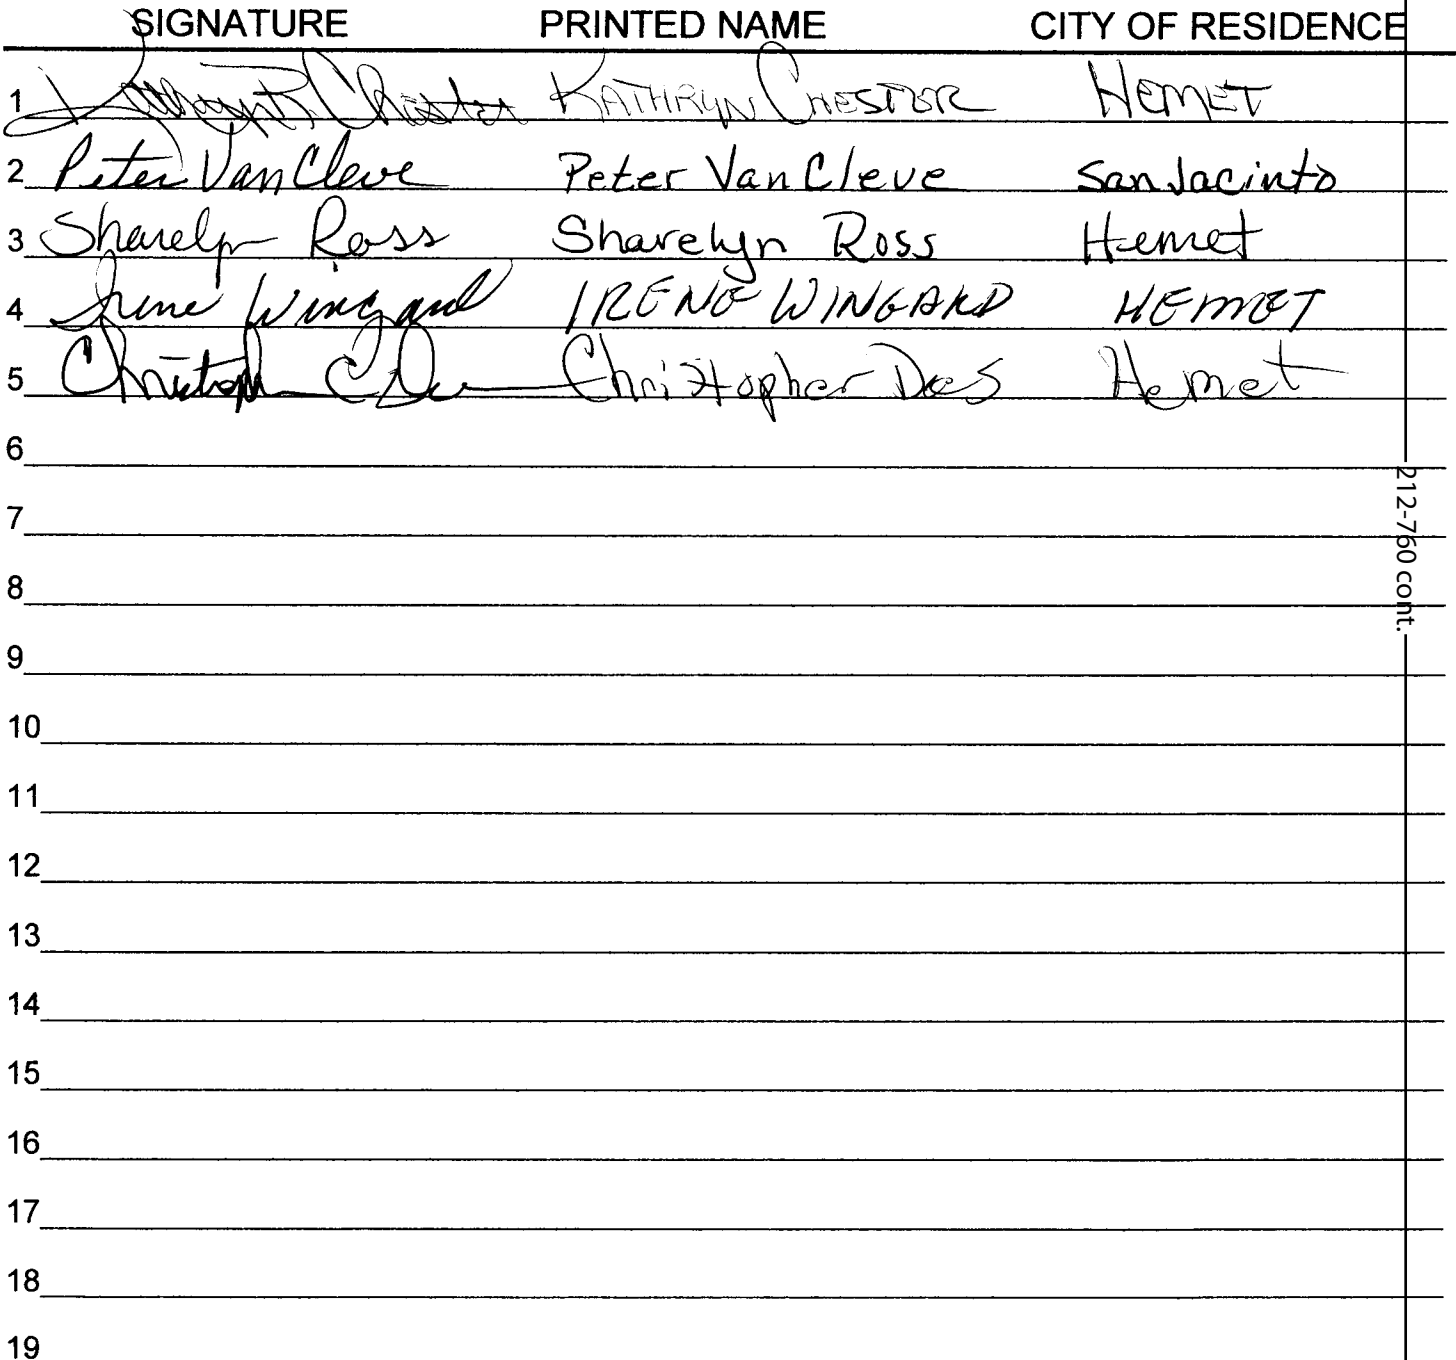 SIGNATURE PRINTED NAME CITY OF RESIDENCE
1 Kathryn R. Chester KATHRYN CHESTER HEMET
2 Peter Van Cleve Peter Van Cleve San Jacinto
3 Sharelyn Ross Sharelyn Ross Hemet
4 Irene Wingard IRENE WINGARD HEMET
5 Christopher C Christopher Does Hemet
6
7
8
9
10
11
12
13
14
15
16
17
18
19
212-760 cont.